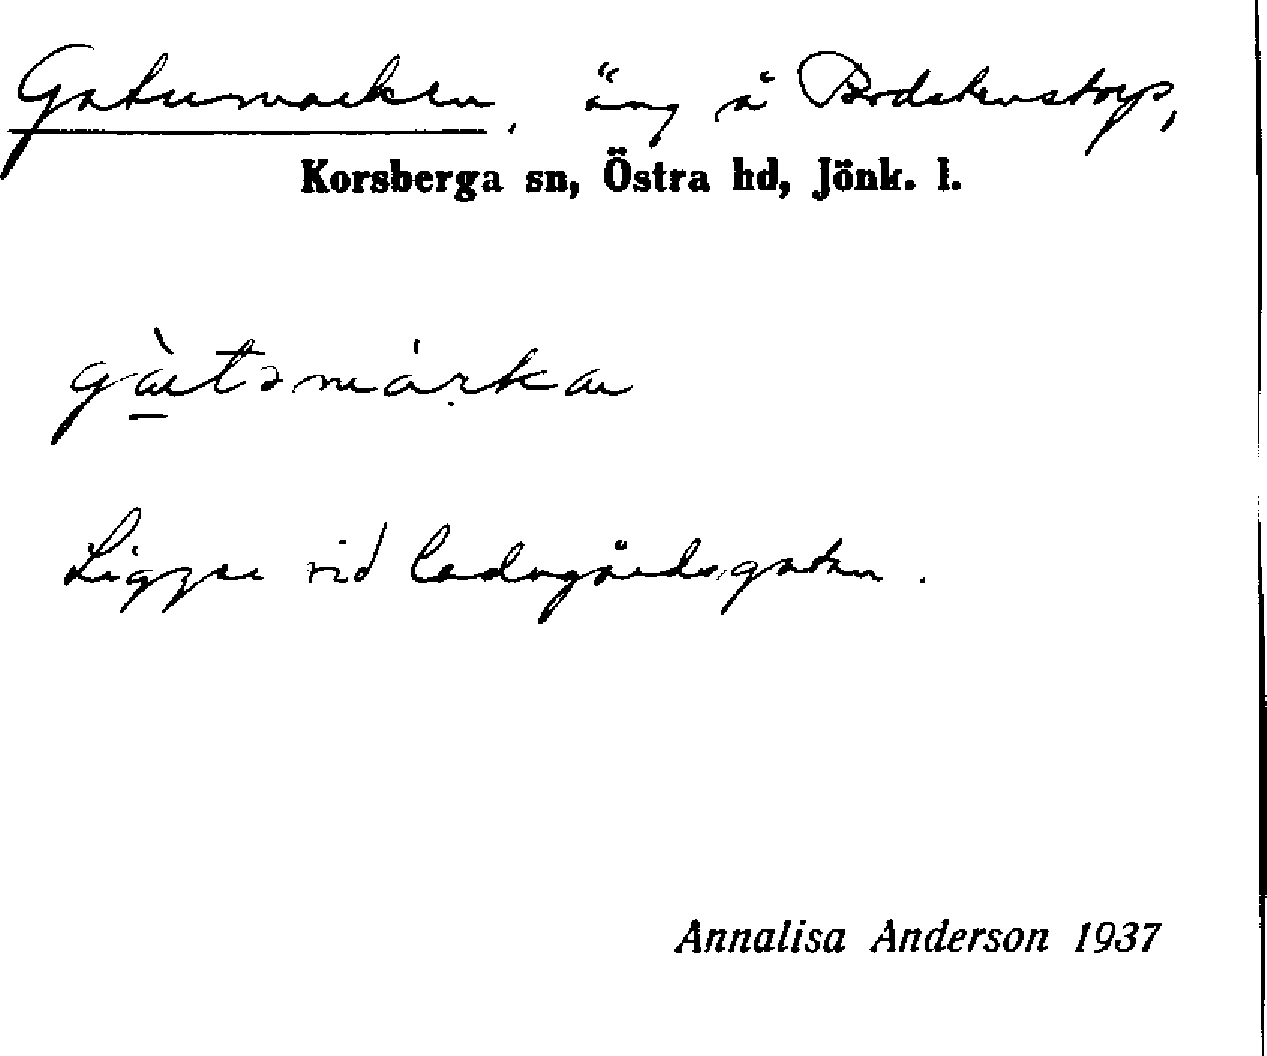 Gatumarken, äng å Bodstenstorp,
Korsberga sn, Östra hd, Jönk. l.
Ligger vid ladugårdsgatan.
Annalisa Anderson 1937